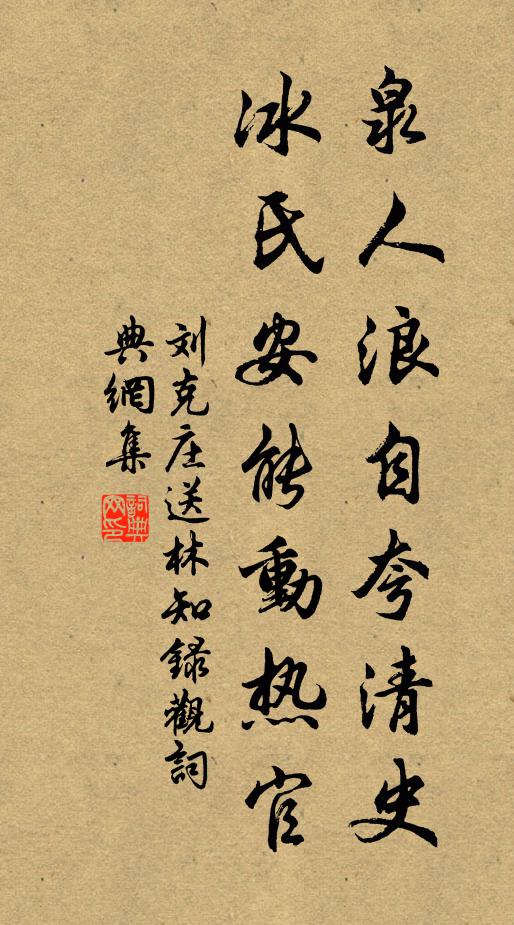 泉人浪自夸清史
冰氏安能動热官
刘克庄送林知錄觀詞
典網集
詞典网印